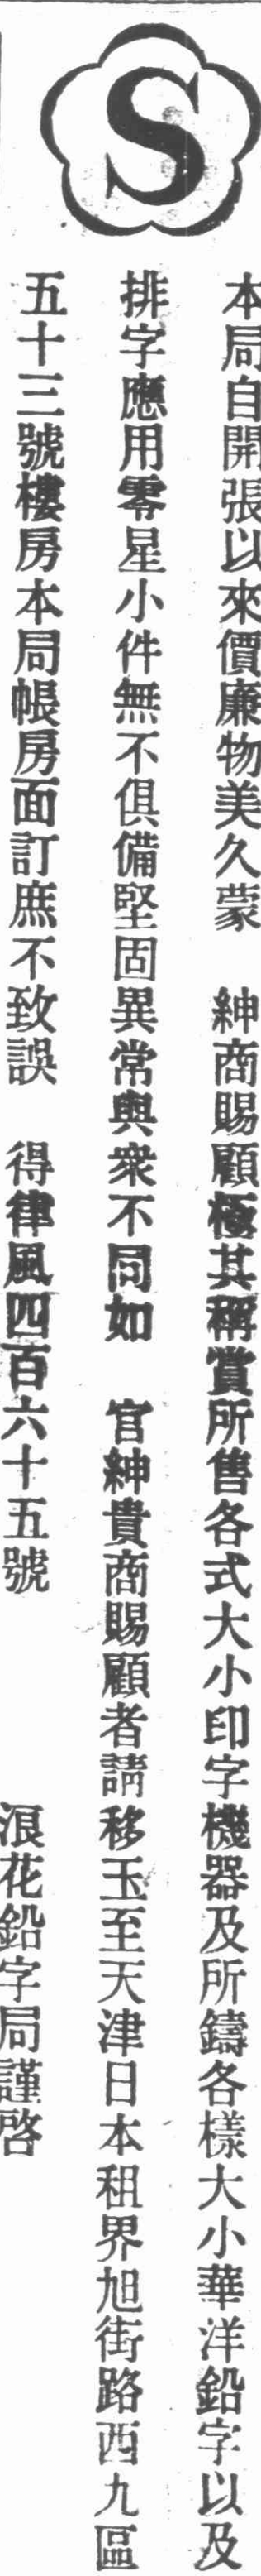 S
本局自開張以來價廉物美久蒙　紳商賜顧極其稱賞所售各式大小印字機器及所鑄各樣大小華洋鉛字以及
排字應用零星小件無不俱備堅固異常與衆不同如　官紳貴商賜顧者請移玉至天津日本租界旭街路西九區
五十三號樓房本局帳房面訂庶不致誤　得律風四百六十五號　浪花鉛字局謹啓